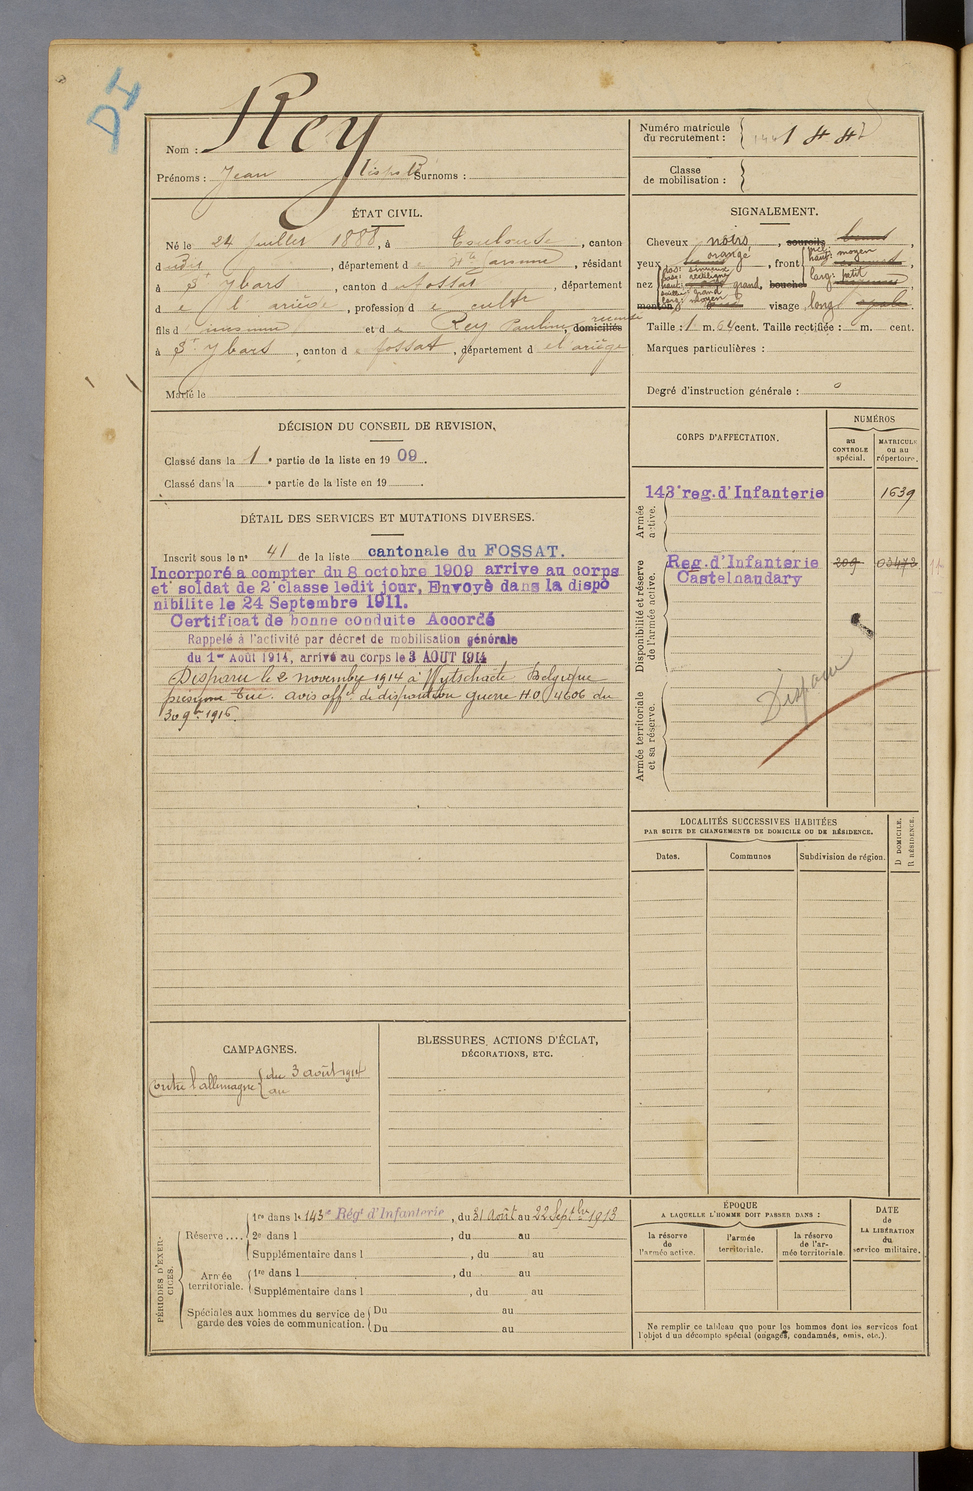 DI
Nom : Rey
Prénoms : Jean Surnoms :
Numéro matricule du recrutement : 1442
Classe de mobilisation :
ÉTAT CIVIL.
Né le 24 juillet 1888, à Toulouse, canton
dudit, département de Hte Garonne, résidant
à St Ybars, canton du Fossat, département
de l'ariège, profession de cultr
fils d' inconnu et de Rey Pauline, domiciliés
à St Ybars, canton de fossat, département de l'ariège
Marié le
SIGNALEMENT.
Cheveux noirs, sourcils
yeux orangé, front moyen
nez grand, bouche
menton visage long
Taille : 1 m. 64 cent. Taille rectifiée : m. cent.
Marques particulières :
Degré d'instruction générale : 0
DÉCISION DU CONSEIL DE REVISION,
Classé dans la 1e partie de la liste en 1909.
Classé dans la e partie de la liste en 19 .
DÉTAIL DES SERVICES ET MUTATIONS DIVERSES.
Inscrit sous le n° 41 de la liste cantonale du FOSSAT.
Incorporé a compter du 8 octobre 1909 arrive au corps
et soldat de 2e classe ledit jour, Envoyé dans la dispo
nibilite le 24 Septembre 1911.
Certificat de bonne conduite Accordé
Rappelé à l'activité par décret de mobilisation générale
du 1er Août 1914, arrivé au corps le 3 AOUT 1914
Disparu le 2 novembre 1914 à Wytschaete Belgique
présumé tué. avis offel de disparition guerre H.O 4606 du
30 9bre 1916.
CORPS D'AFFECTATION.
NUMÉROS
au CONTROLE spécial.
MATRICULE ou au répertoire.
Armée active.
143e reg. d'Infanterie 1639
Disponibilité et réserve de l'armée active.
Reg. d'Infanterie 209 03473
Castelnaudary
Disparu
Armée territoriale et sa réserve.
LOCALITÉS SUCCESSIVES HABITÉES
PAR SUITE DE CHANGEMENTS DE DOMICILE OU DE RÉSIDENCE.
D DOMICILE.
R RÉSIDENCE.
Dates.
Communes
Subdivision de région.
CAMPAGNES.
Contre l'allemagne du 3 août 1914
au
BLESSURES, ACTIONS D'ÉCLAT,
DÉCORATIONS, ETC.
PÉRIODES D'EXERCICES.
Réserve .... 1re dans le 143e Régt d'Infanterie, du 31 août au 22 Septbre 1913
2e dans l , du au
Supplémentaire dans l , du au
Armée territoriale. 1re dans l , du au
Supplémentaire dans l , du au
Spéciales aux hommes du service de garde des voies de communication. Du au
Du au
ÉPOQUE
A LAQUELLE L'HOMME DOIT PASSER DANS :
la réserve de l'armée active.
l'armée territoriale.
la réserve de l'armée territoriale.
DATE DE LA LIBÉRATION du service militaire.
Ne remplir ce tableau que pour les hommes dont les services font
l'objet d'un décompte spécial (engagés, condamnés, omis, etc.).